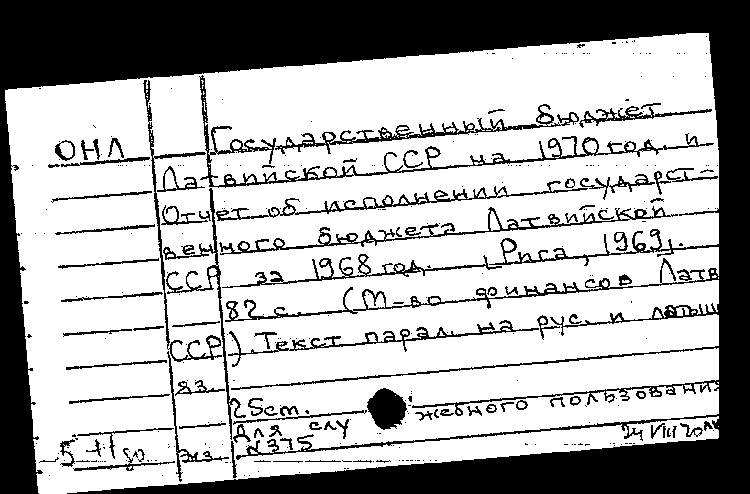 ОНЛ Государственный бюджет
Латвийской ССР на 1970 год. и
Отчет об исполнении государст-
венного бюджета Латвийской
ССР за 1968 год. [Рига, 1969].
82 с. (М-во финансов Латв
ССР). Текст парал. на рус. и латыш
яз.
25 cm.
Для слу жебного пользования
экз. №375